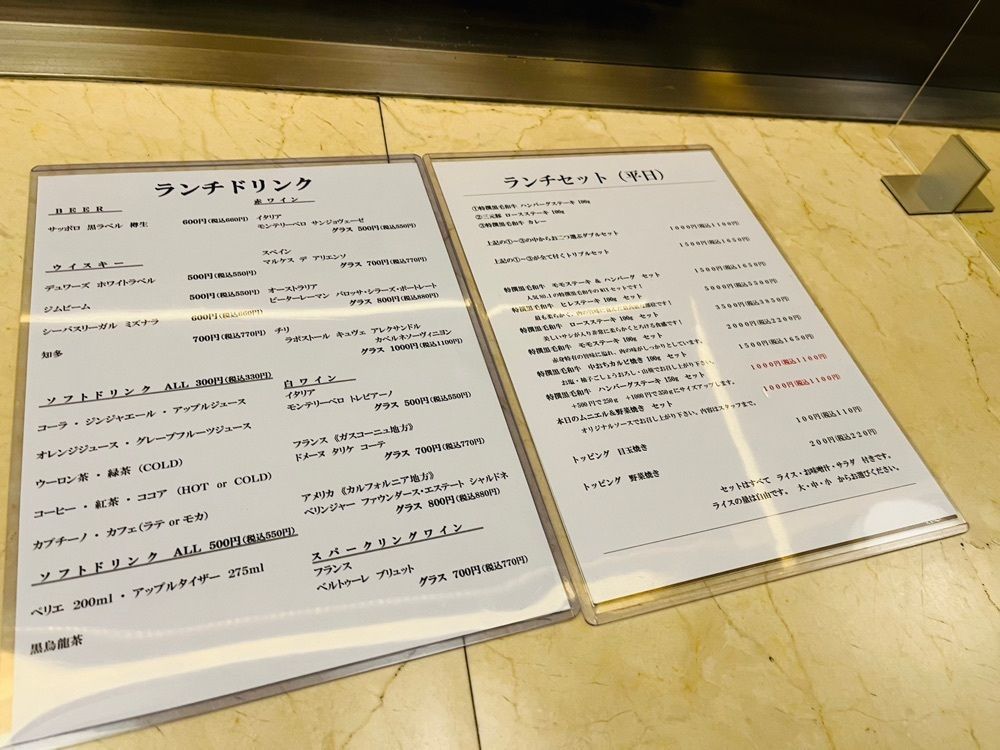 ランチドリンク
BEER
サッポロ 黒ラベル 樽生 600円(税込660円)
ウイスキー
デュワーズ ホワイトラベル 500円(税込550円)
ジムビーム 500円(税込550円)
シーバスリーガル ミズナラ 600円(税込660円)
知多 700円(税込770円)
ソフトドリンク ALL 300円(税込330円)
コーラ・ジンジャエール・アップルジュース
オレンジジュース・グレープフルーツジュース
ウーロン茶・緑茶 (COLD)
コーヒー・紅茶・ココア (HOT or COLD)
カプチーノ・カフェ(ラテ or モカ)
ソフトドリンク ALL 500円(税込550円)
ペリエ 200ml・アップルタイザー 275ml
黒烏龍茶
赤ワイン
イタリア
モンテリーベロ サンジョヴェーゼ
グラス 500円(税込550円)
スペイン
マルケス デ アリエンソ
グラス 700円(税込770円)
オーストラリア
ピーターレーマン バロッサ・シラーズ・ポートレート
グラス 800円(税込880円)
チリ
ラポストール キュヴェ アレクサンドル
カベルネソーヴィニヨン
グラス 1000円(税込1100円)
白ワイン
イタリア
モンテリーベロ トレビアーノ
グラス 500円(税込550円)
フランス《ガスコーニュ地方》
ドメーヌ タリケ コーテ
グラス 700円(税込770円)
アメリカ《カルフォルニア地方》
ベリンジャー ファウンダース・エステート シャルドネ
グラス 800円(税込880円)
スパークリングワイン
フランス
ベルトゥーレ ブリュット
グラス 700円(税込770円)
ランチセット (平日)
①特撰黒毛和牛 ハンバーグステーキ 100g
②三元豚 ロースステーキ 100g
③特撰黒毛和牛 カレー
上記の①~③の中からお二つ選ぶダブルセット 1000円(税込1100円)
上記の①~③が全て付くトリプルセット 1500円(税込1650円)
特撰黒毛和牛 モモステーキ & ハンバーグ セット 1500円(税込1650円)
人気NO.1の特撰黒毛和牛のWIセットです!
特撰黒毛和牛 ヒレステーキ 100g セット 5000円(税込5500円)
特撰黒毛和牛 ロースステーキ 100g セット 3500円(税込3850円)
美しいサシが入り非常に柔らかくとろける食感です!
特撰黒毛和牛 モモステーキ 100g セット 2000円(税込2200円)
赤身特有の旨味に溢れ、肉の味がしっかりとしています。
特撰黒毛和牛 中おちカルビ焼き 100g セット 1500円(税込1650円)
お塩・柚子こしょうおろし・山椒でお召し上がり下さい。
特撰黒毛和牛 ハンバーグステーキ 150g セット 1000円(税込1100円)
+500円で250g +1000円で350gにサイズアップします。
本日のムニエル&野菜焼き セット 1000円(税込1100円)
オリジナルソースでお召し上がり下さい。内容はスタッフまで。
トッピング 目玉焼き 100円(税込110円)
トッピング 野菜焼き 200円(税込220円)
セットはすべて ライス・お味噌汁・サラダ 付きです。
ライスの量は自由です。 大・中・小 からお選びください。